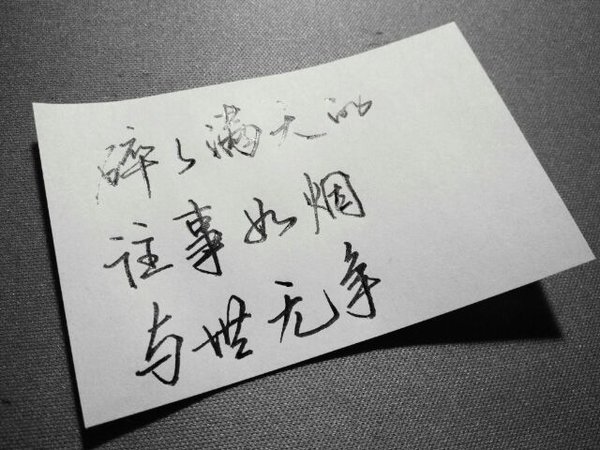 碎碎满天的
往事如烟
与世无争